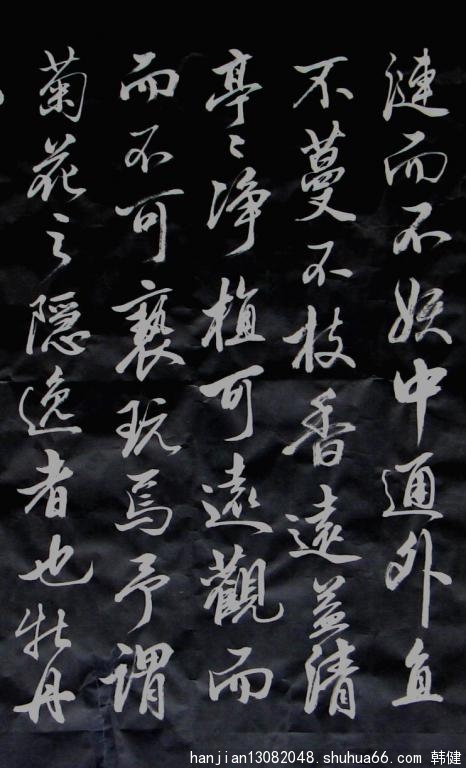 漣而不妖中通外直
不蔓不枝香遠益清
亭〻净植可遠觀而
而不可褻玩焉予謂
菊花之隱逸者也牡丹
hanjian13082048.shuhua66.com 韩健